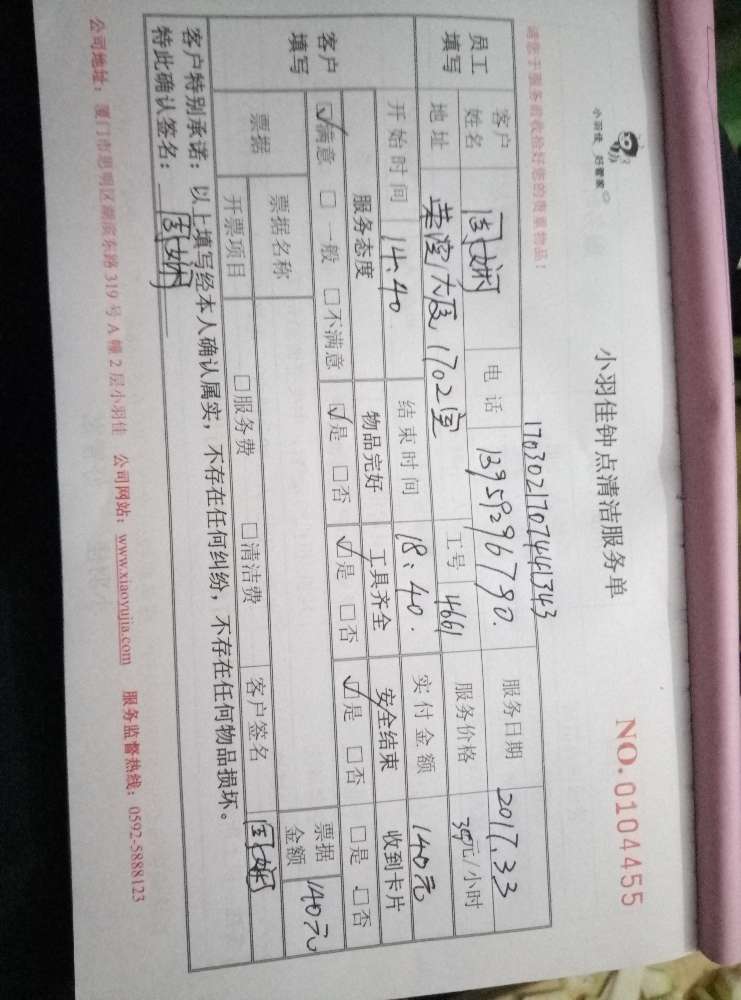 小羽佳 好管家
小羽佳钟点清洁服务单 NO.0104455
17030217074461343
请您于服务前收拾好您的贵重物品！
员工填写 客户姓名 电话 13959296790. 服务日期 2017.3.3
地址 1702室 工号 4661 服务价格 35元/小时
开始时间 14:40 结束时间 18:40. 实付金额 140元
客户填写 服务态度 物品完好 工具齐全 安全结束 收到卡片
☑满意 □一般 □不满意 ☑是 □否 ☑是 □否 ☑是 □否 □是 □否
票据 票据名称 票据金额 140元
开票项目 □服务费 □清洁费 客户签名
客户特别承诺：以上填写经本人确认属实，不存在任何纠纷，不存在任何物品损坏。
特此确认签名：
公司地址：厦门市思明区湖滨东路319号A幢2层小羽佳 公司网站：www.xiaoyujia.com 服务监督热线：0592-5888123